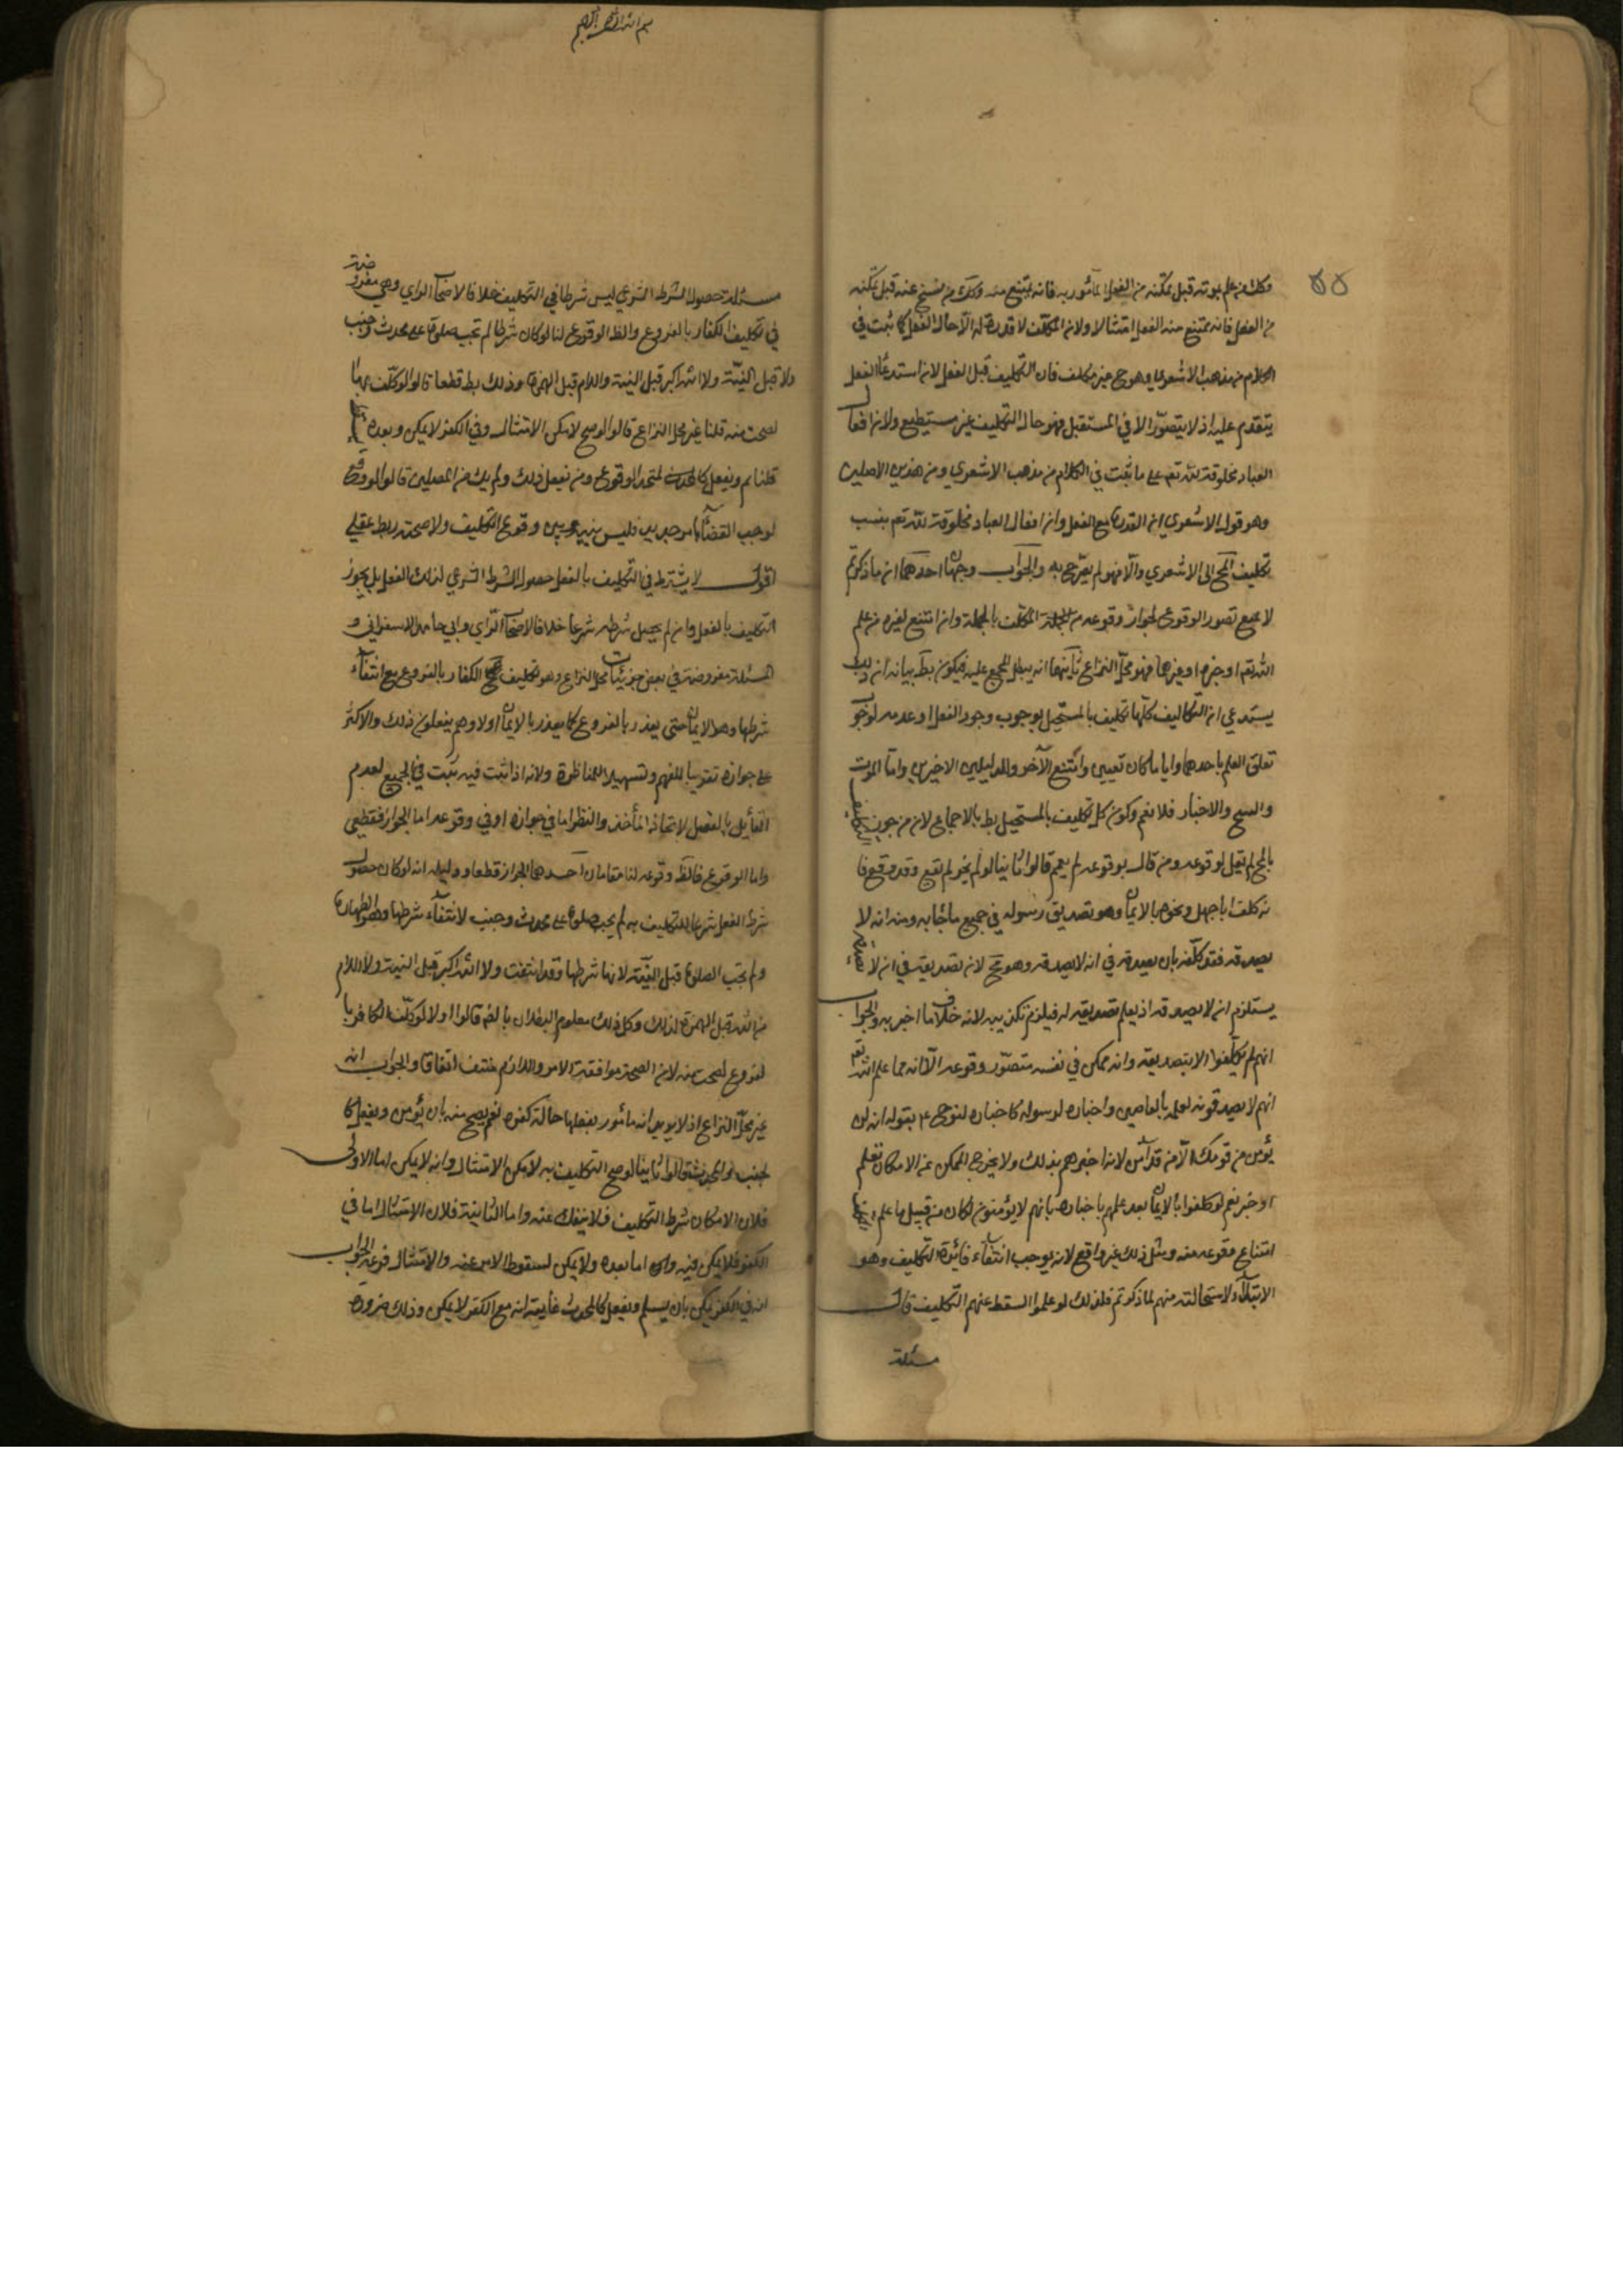 ۵۵
وكك من علم بموته قبل تمكنه من الفعل المأمور به فانه يمتنع منه وكك من نسخ عنه قبل تمكنه
من الفعل فانه يمتنع منه الفعل امتثالا ولان المكلف لا قدرة له الا حال الفعل كما ثبت في
الكلام من مذهب الاشعري وهو ح غير مكلف فان التكليف قبل الفعل لانه استدعاء الفعل
يتقدم عليه اذ لا يتصور الا في المستقبل فهو حال التكليف غير مستطيع ولان افعال
العباد مخلوقة لله تعم على ما ثبت في الكلام من مذهب الاشعري ومن هذين الاصلين
وهو قول الاشعري ان القدرة مع الفعل وان افعال العباد مخلوقة لله تعم ينسب
تكليف المح الى الاشعري والا فهو لم يصرح به والجواب وجهان احدهما ان ما ذكرتم
لا يمنع تصور الوقوع لجواز وقوعه من المكلف بالجملة وان امتنع لغيره من علم
الله تعم او خبره او غيرهما فهو محل النزاع ثانيهما انه يبطل المجمع عليه فيكون بط بيانه ان ذلك
يستدعي ان التكاليف كلها تكليف بالمستحيل لوجوب وجود الفعل او عدمه لوجوب
تعلق العلم باحدهما وايا ما كان تعيين وامتنع الآخر وللدليلين الاخيرين واما الموت
والنسخ والاخبار فلا نعم وكون كل تكليف بالمستحيل بط بالاجماع لان من جوز
بالمح لم يقل بوقوعه ومن قال بوقوعه لم يعمم قالوا ثانيا لو لم يجز لم يقع وقد وقع فا
نه كلف ابا جهل ونحوه بالايمان وهو تصديق رسوله في جميع ما جاء به ومنه انه لا
يصدقه فقد كلفه بان يصدقه في انه لا يصدقه وهو مح لان تصديقه في ان لا
يستلزم ان لا يصدقه اذ يعلم تصديقه له فيلزم تكذيبه لانه خلاف ما اخبر به والجواب
انهم لم يكلفوا الا بتصديقه وانه ممكن في نفسه متصور وقوعه الا انه مما علم الله تعم
انهم لا يصدقونه لعلمه بالعاصين واخباره لرسوله كاخباره لنوح ع بقوله انه لن
يؤمن من قومك الا من قد آمن لا انه اخبرهم بذلك ولا يخرج الممكن عن الامكان بعلم
او خبر نعم لو كلفوا بالايمان بعد علمهم باخباره بانهم لا يؤمنون لكان من قبيل ما علم
امتناع وقوعه منه ومثل ذلك غير واقع لانه يوجب انتفاء فائدة التكليف وهو
الابتلاء لاستحالته منهم لما ذكرتم فلذلك لو علموا لسقط عنهم التكليف قال
مسئلة
بسم الله الرحمن الرحيم
مسئلة حصول الشرط الشرعي ليس شرطا في التكليف خلافا لاصحاب الراي وهي مفروضة
في تكليف الكفار بالفروع والظ الوقوع لنا لو كان شرطا لم تجب صلوة على محدث وجنب
ولا قبل النية ولا الله اكبر قبل النية واللام قبل الهمزة وذلك بط قطعا قالوا لو كلف بها
لصحت منه قلنا غير محل النزاع قالوا لو صح لامكن الامتثال وفي الكفر لا يمكن وبعده
قلنا يسلم ويفعل كالمحدث لنا الوقوع ومن يفعل ذلك ولم نك من المصلين قالوا لو وقع
لوجب القضاء بامر جديد فليس بينه وبين وقوع التكليف ولا صحته ربط عقلي
اقول لا يشترط في التكليف بالفعل حصول الشرط الشرعي لذلك الفعل بل يجوز
التكليف بالفعل وان لم يحصل شرطه شرعا خلافا لاصحاب الراي وابي حامد الاسفرايني و
المسئلة مفروضة في بعض جزئيات محل النزاع وهو تكليف الكفار بالفروع مع انتفاء
شرطها وهو الايمان حتى يعذب بالفروع كما يعذب بالايمان اولا وهم يفعلون ذلك والاكثر
على جوازه تقريبا للفهم وتسهيلا للمناظرة ولانه اذا ثبت فيه ثبت في الجميع لعدم
القائل بالفصل لاتحاد المأخذ والنظر اما في جوازه او في وقوعه اما الجواز فقطعي
واما الوقوع فالظ وقوعه لنا مقامان احدهما الجواز قطعا ودليله انه لو كان حصول
شرط الفعل شرعا للتكليف به لم يجب صلوة على محدث وجنب لانتفاء شرطها وهو الطهارة
ولم تجب الصلوة قبل النية لانها شرطها وقد انتفت ولا الله اكبر قبل النية ولا اللام
من الله قبل الهمزة لذلك وكل ذلك معلوم البطلان بالضرورة قالوا اولا لو كلف الكافر با
لفروع لصحت منه لان الصحة موافقة الامر واللازم منتف اتفاقا والجواب انه
غير محل النزاع اذ لا يريد انه مأمور بفعلها حالة كفره نعم يصح منه بان يؤمن ويفعل كا
لجنب والمحدث قالوا ثانيا لو صح التكليف به لامكن الامتثال وانه لا يمكن اما الاولى
فلان الامكان شرط التكليف فلا ينفك عنه واما الثانية فلان الامتثال اما في
الكفر فلا يمكن فيه واما بعده ولا يمكن لسقوط الامر عنه والامتثال فرعه الجواب
انه في الكفر يمكن بان يسلم ويفعل كالمحدث غايته انه مع الكفر لا يمكن وذلك ضرورة